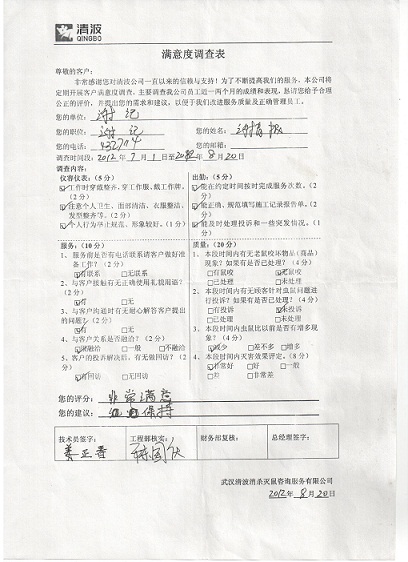 清波
QINGBO
满意度调查表
尊敬的客户：
非常感谢您对清波公司一直以来的信赖与支持！为了不断提高我们的服务，本公司将
定期开展客户满意度调查，主要调查我公司员工近一两个月的成绩和表现，恳请您给予合理
公正的评价，并提出您的需求和建议，以便于我们改进服务质量及正确管理员工。
您的单位：谢记
您的职位：谢记 您的姓名：
您的电话： 您的邮箱：
调查时间段：2012年7月1日至2012年8月20日
调查内容：
仪容仪表：（5分）
☑工作时穿戴整齐，穿工作服、戴工作牌。
（2分）
☑注意个人卫生，面部清洁、衣服整洁、
发型整齐等。（2分）
☑个人行为举止规范，形象较好。（1分）
出勤：（5分）
☑能在约定时间按时完成服务次数。（2
分）
☑能正确、规范填写施工记录报告单。（2
分）
☑能及时处理投诉和一些突发情况。（1
分）
服务：（10分）
1、服务前是否有电话联系请客户做好准
备工作？（2分）
☑有联系 □无联系
2、与客户接触有无正确使用礼貌用语？
（2分）
☑有 □无
3、与客户沟通时有无耐心解答客户提出
的问题？（2分）
☑有 □无
4、与客户关系是否融洽？（2分）
☑很融洽 □一般 □不融洽
5、客户的投诉解决后，有无做回访？（2
分）
☑有回访 □无回访
质量：（20分）
1、本段时间内有无老鼠咬坏物品（商品）
现象？如果有是否已处理？（4分）
□有鼠咬 ☑无鼠咬
□已处理 □未处理
2、本段时间内有无顾客针对虫鼠问题进
行投诉？如果有是否已处理？（4分）
□有投诉 ☑无投诉
□已处理 □未处理
3、本段时间内虫鼠比以前是否有增多现
象？（4分）
☑减少 □差不多 □增多
4、本段时间内灭害效果评定。（8分）
☑非常好 □好 □一般
□差 □非常差
您的评分：非常满意
您的建议：保持
技术员签字： 工程部核实： 财务部复核： 总经理签字：
武汉清波消杀灭鼠咨询服务有限公司
2012年8月20日